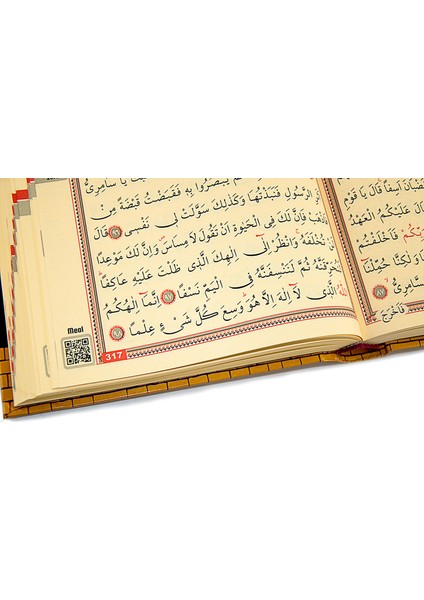 يَا سَامِرِىُّ
يَبْصُرُوا بِهِ فَقَبَضْتُ قَبْضَةً مِنْ
الرَّسُولِ فَنَبَذْتُهَا وَكَذٰلِكَ سَوَّلَتْ لِى نَفْسِى ﴿٩٦﴾ قَالَ
فَاِنَّ لَكَ فِى الْحَيٰوةِ اَنْ تَقُولَ لَا مِسَاسَ وَاِنَّ لَكَ مَوْعِدًا
تُخْلَفَهُ وَانْظُرْ اِلٰٓى اِلٰهِكَ الَّذِى ظَلْتَ عَلَيْهِ عَاكِفًا
ثُمَّ لَنَنْسِفَنَّهُ فِى الْيَمِّ نَسْفًا ﴿٩٧﴾ اِنَّمَٓا اِلٰهُكُمُ
الَّذِى لَٓا اِلٰهَ اِلَّا هُوَ وَسِعَ كُلَّ شَىْءٍ عِلْمًا ﴿٩٨﴾
Meal
317
اَسِفًا قَالَ يَا قَوْمِ
عَلَيْكُمُ الْعَهْدُ
فَاَخْلَفْتُمْ
وَلٰكِنَّا حُمِّلْنَٓا
فَاَخْرَجَ